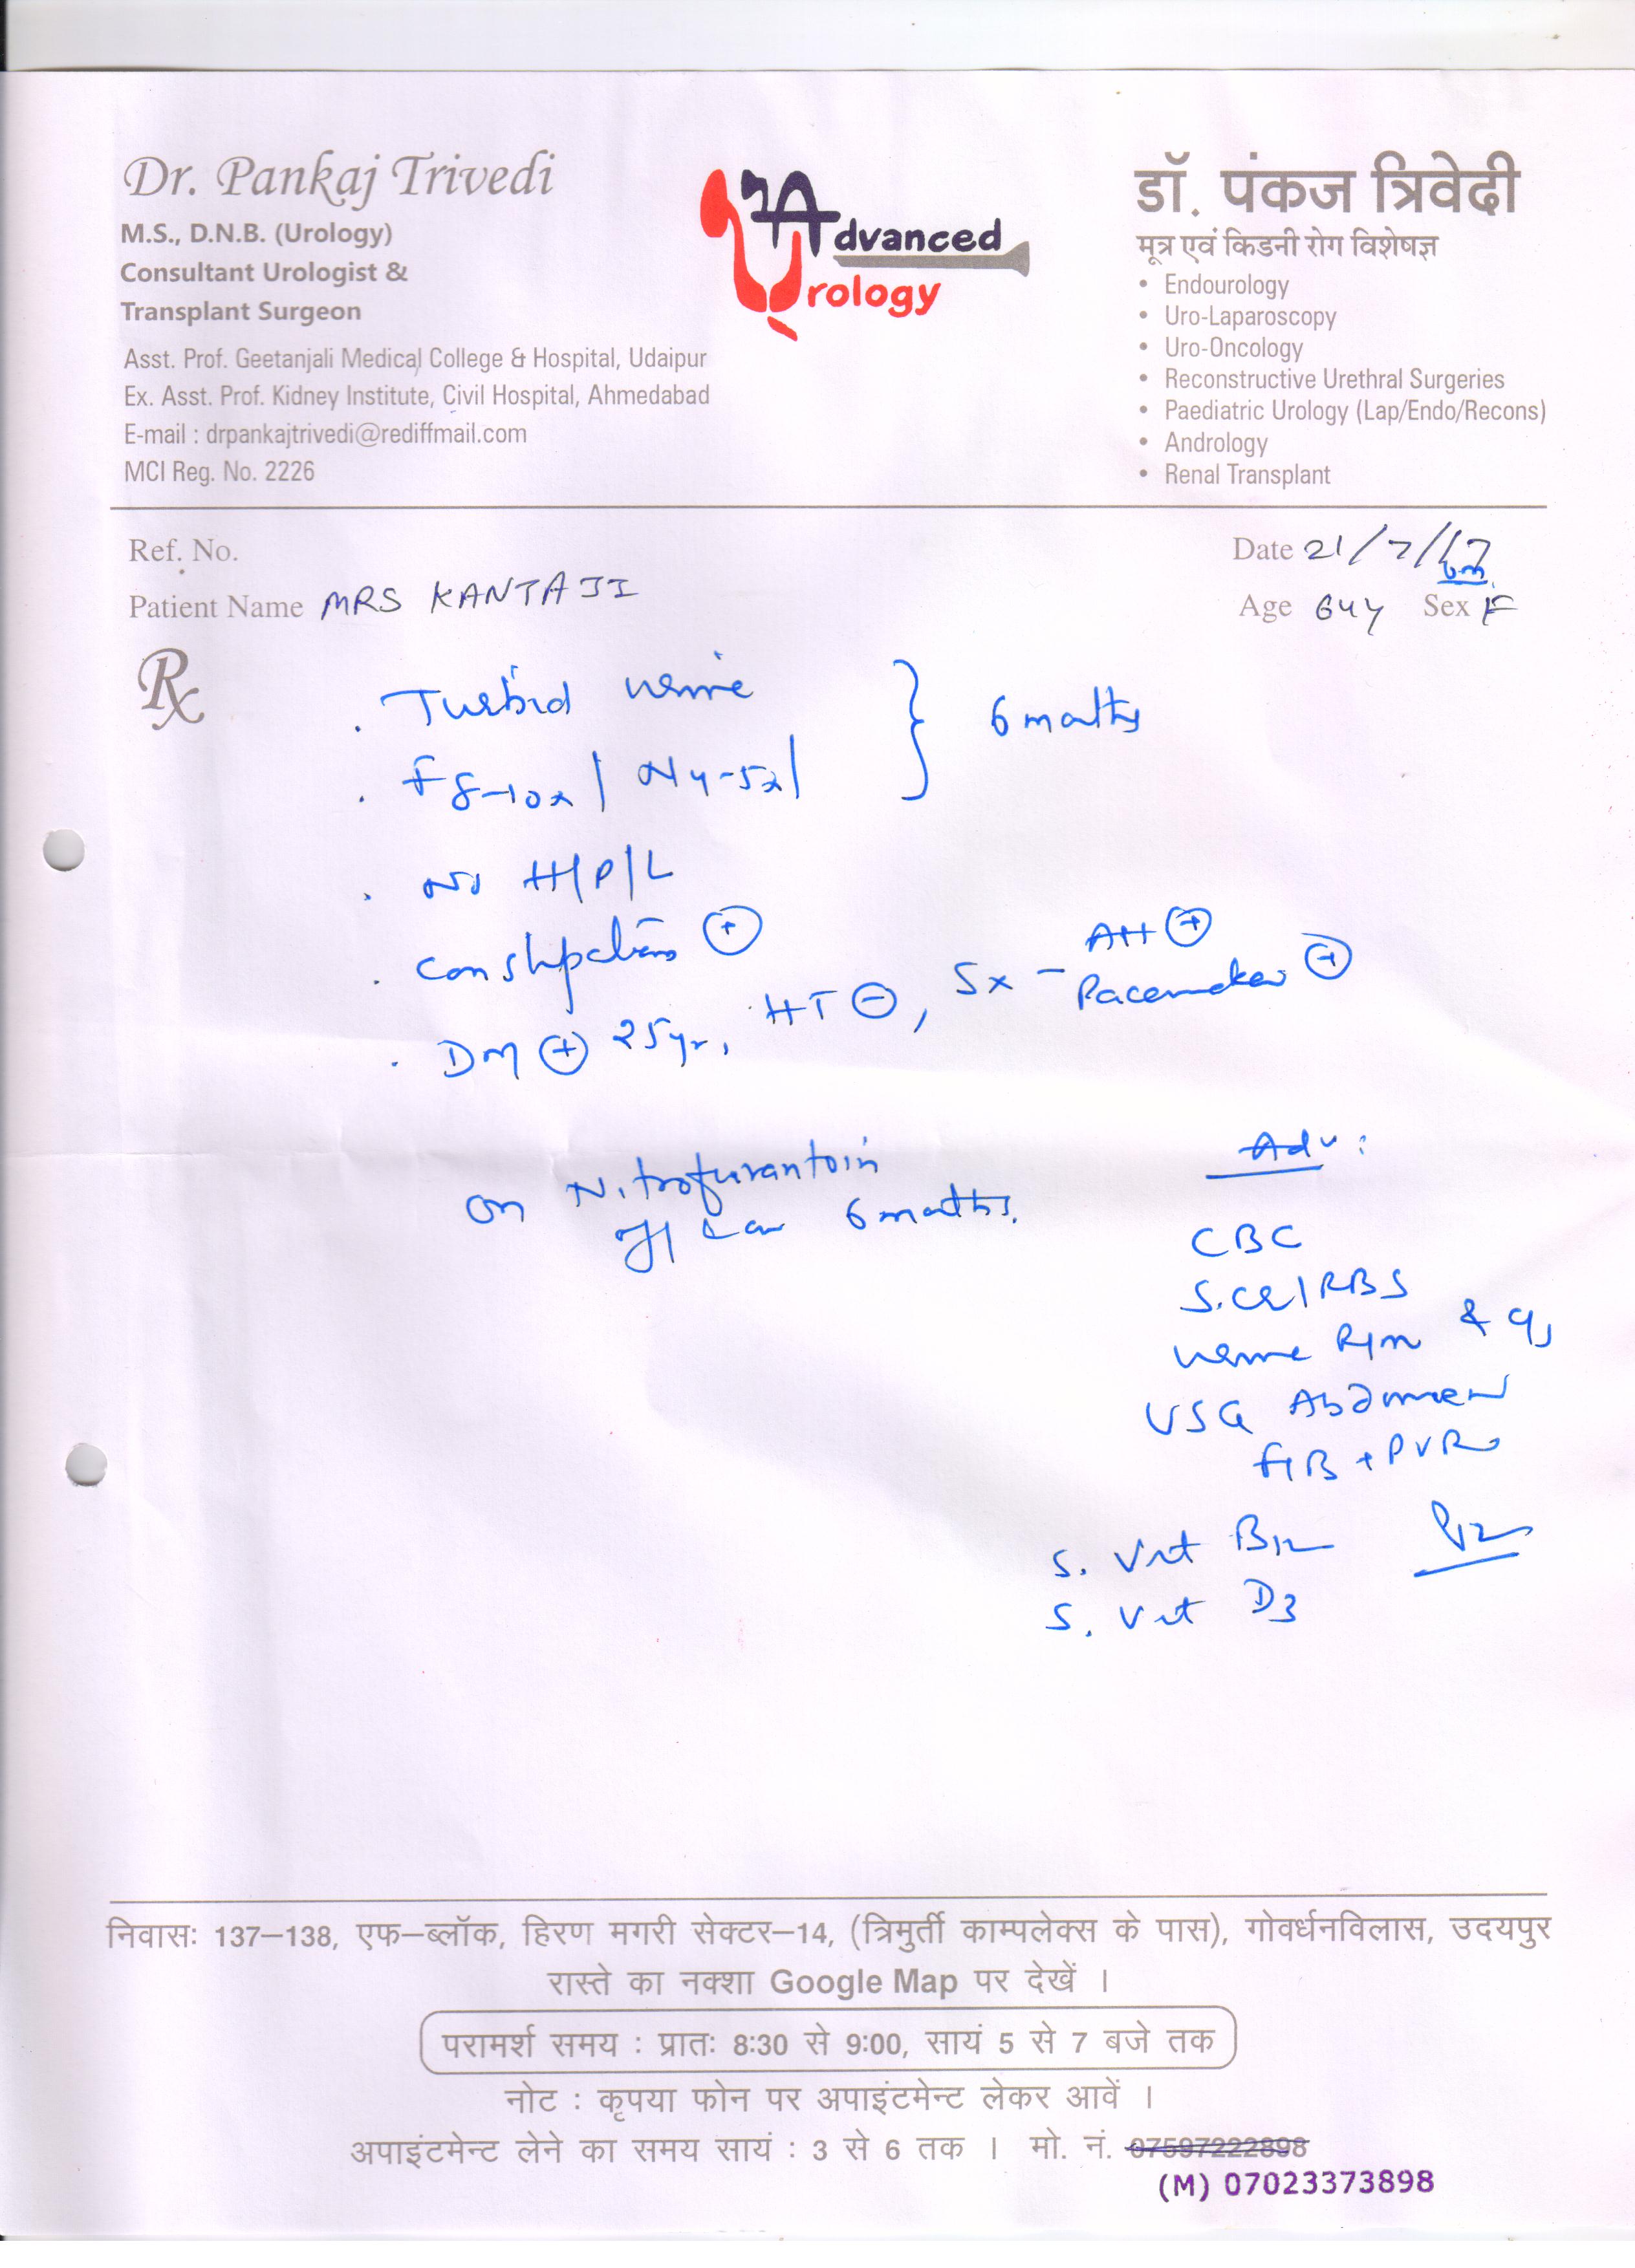 Dr. Pankaj Trivedi
M.S., D.N.B. (Urology)
Consultant Urologist &
Transplant Surgeon
Asst. Prof. Geetanjali Medical College & Hospital, Udaipur
Ex. Asst. Prof. Kidney Institute, Civil Hospital, Ahmedabad
E-mail : drpankajtrivedi@rediffmail.com
MCI Reg. No. 2226
Advanced
Urology
डॉ. पंकज त्रिवेदी
मूत्र एवं किडनी रोग विशेषज्ञ
• Endourology
• Uro-Laparoscopy
• Uro-Oncology
• Reconstructive Urethral Surgeries
• Paediatric Urology (Lap/Endo/Recons)
• Andrology
• Renal Transplant
Ref. No.
Date 21/7/17
Patient Name MRS KANTA JI
Age 64y Sex F
Rx
. Turbid urine
. F 8-10x / N 4-5x/ } 6 months
. No H/P/L
. Constipation +
. DM + 25yr, HT -, Sx - AH +
Pacemaker +
On Nitrofurantoin
6 months.
Adv :
CBC
S. Cr / RBS
urine R/m &
USG Abdomen
+ PVR
S. Vit B12
S. Vit D3
निवासः 137–138, एफ–ब्लॉक, हिरण मगरी सेक्टर–14, (त्रिमुर्ती काम्पलेक्स के पास), गोवर्धनविलास, उदयपुर
रास्ते का नक्शा Google Map पर देखें ।
परामर्श समय : प्रातः 8:30 से 9:00, सायं 5 से 7 बजे तक
नोट : कृपया फोन पर अपाइंटमेन्ट लेकर आवें ।
अपाइंटमेन्ट लेने का समय सायं : 3 से 6 तक । मो. नं. 07597222898
(M) 07023373898